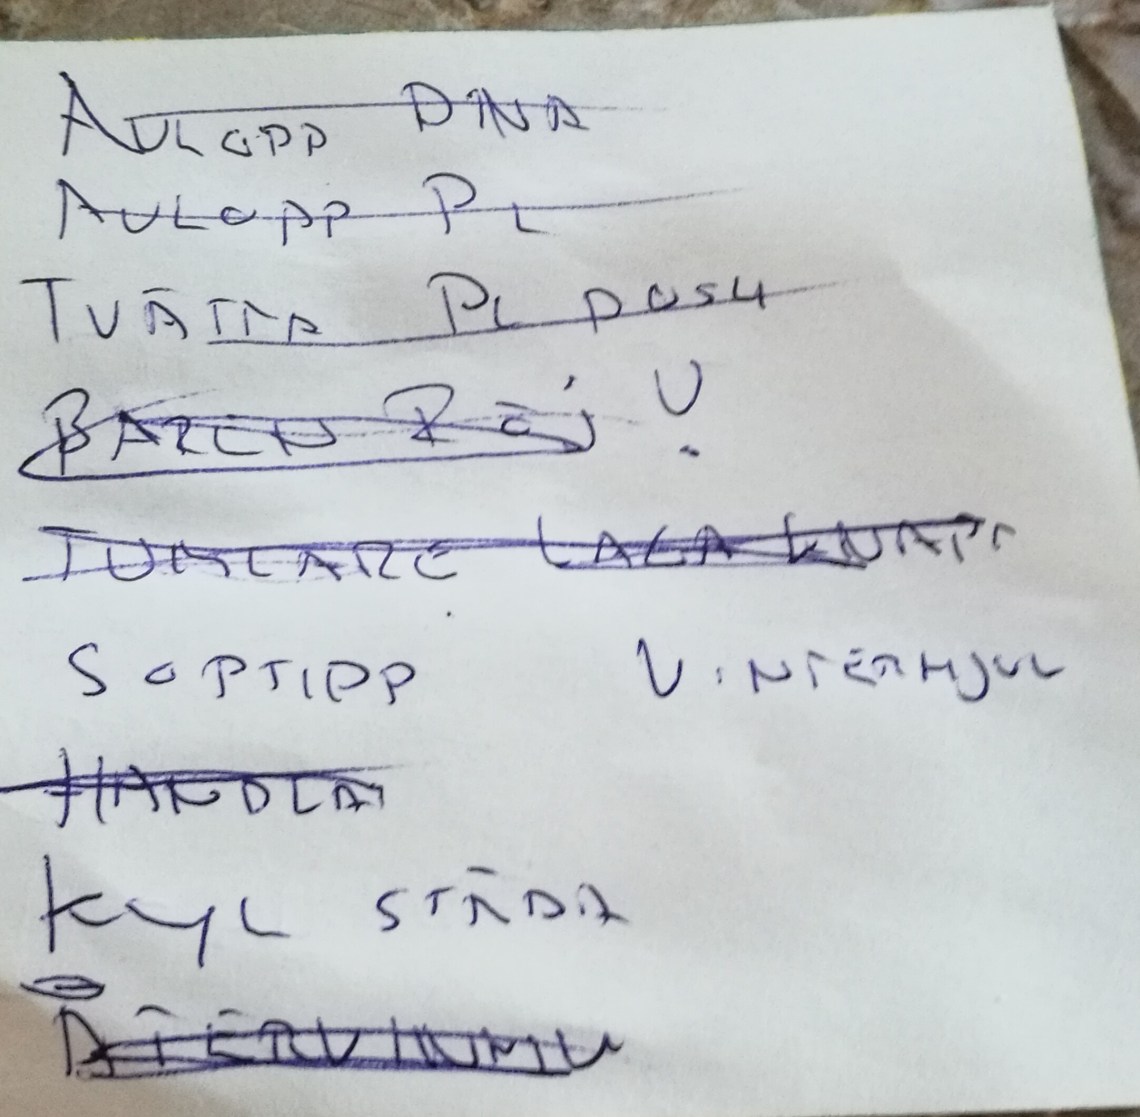 AVLOPP DINA
AVLOPP PL
TVÄTTA PL DUSH
BAREN RÖJ
TUMLARE LAGA KNAPP
SOPTIPP VINTERHJUL
HANDLA
KYL STÄDA
ÅTERVINNIN